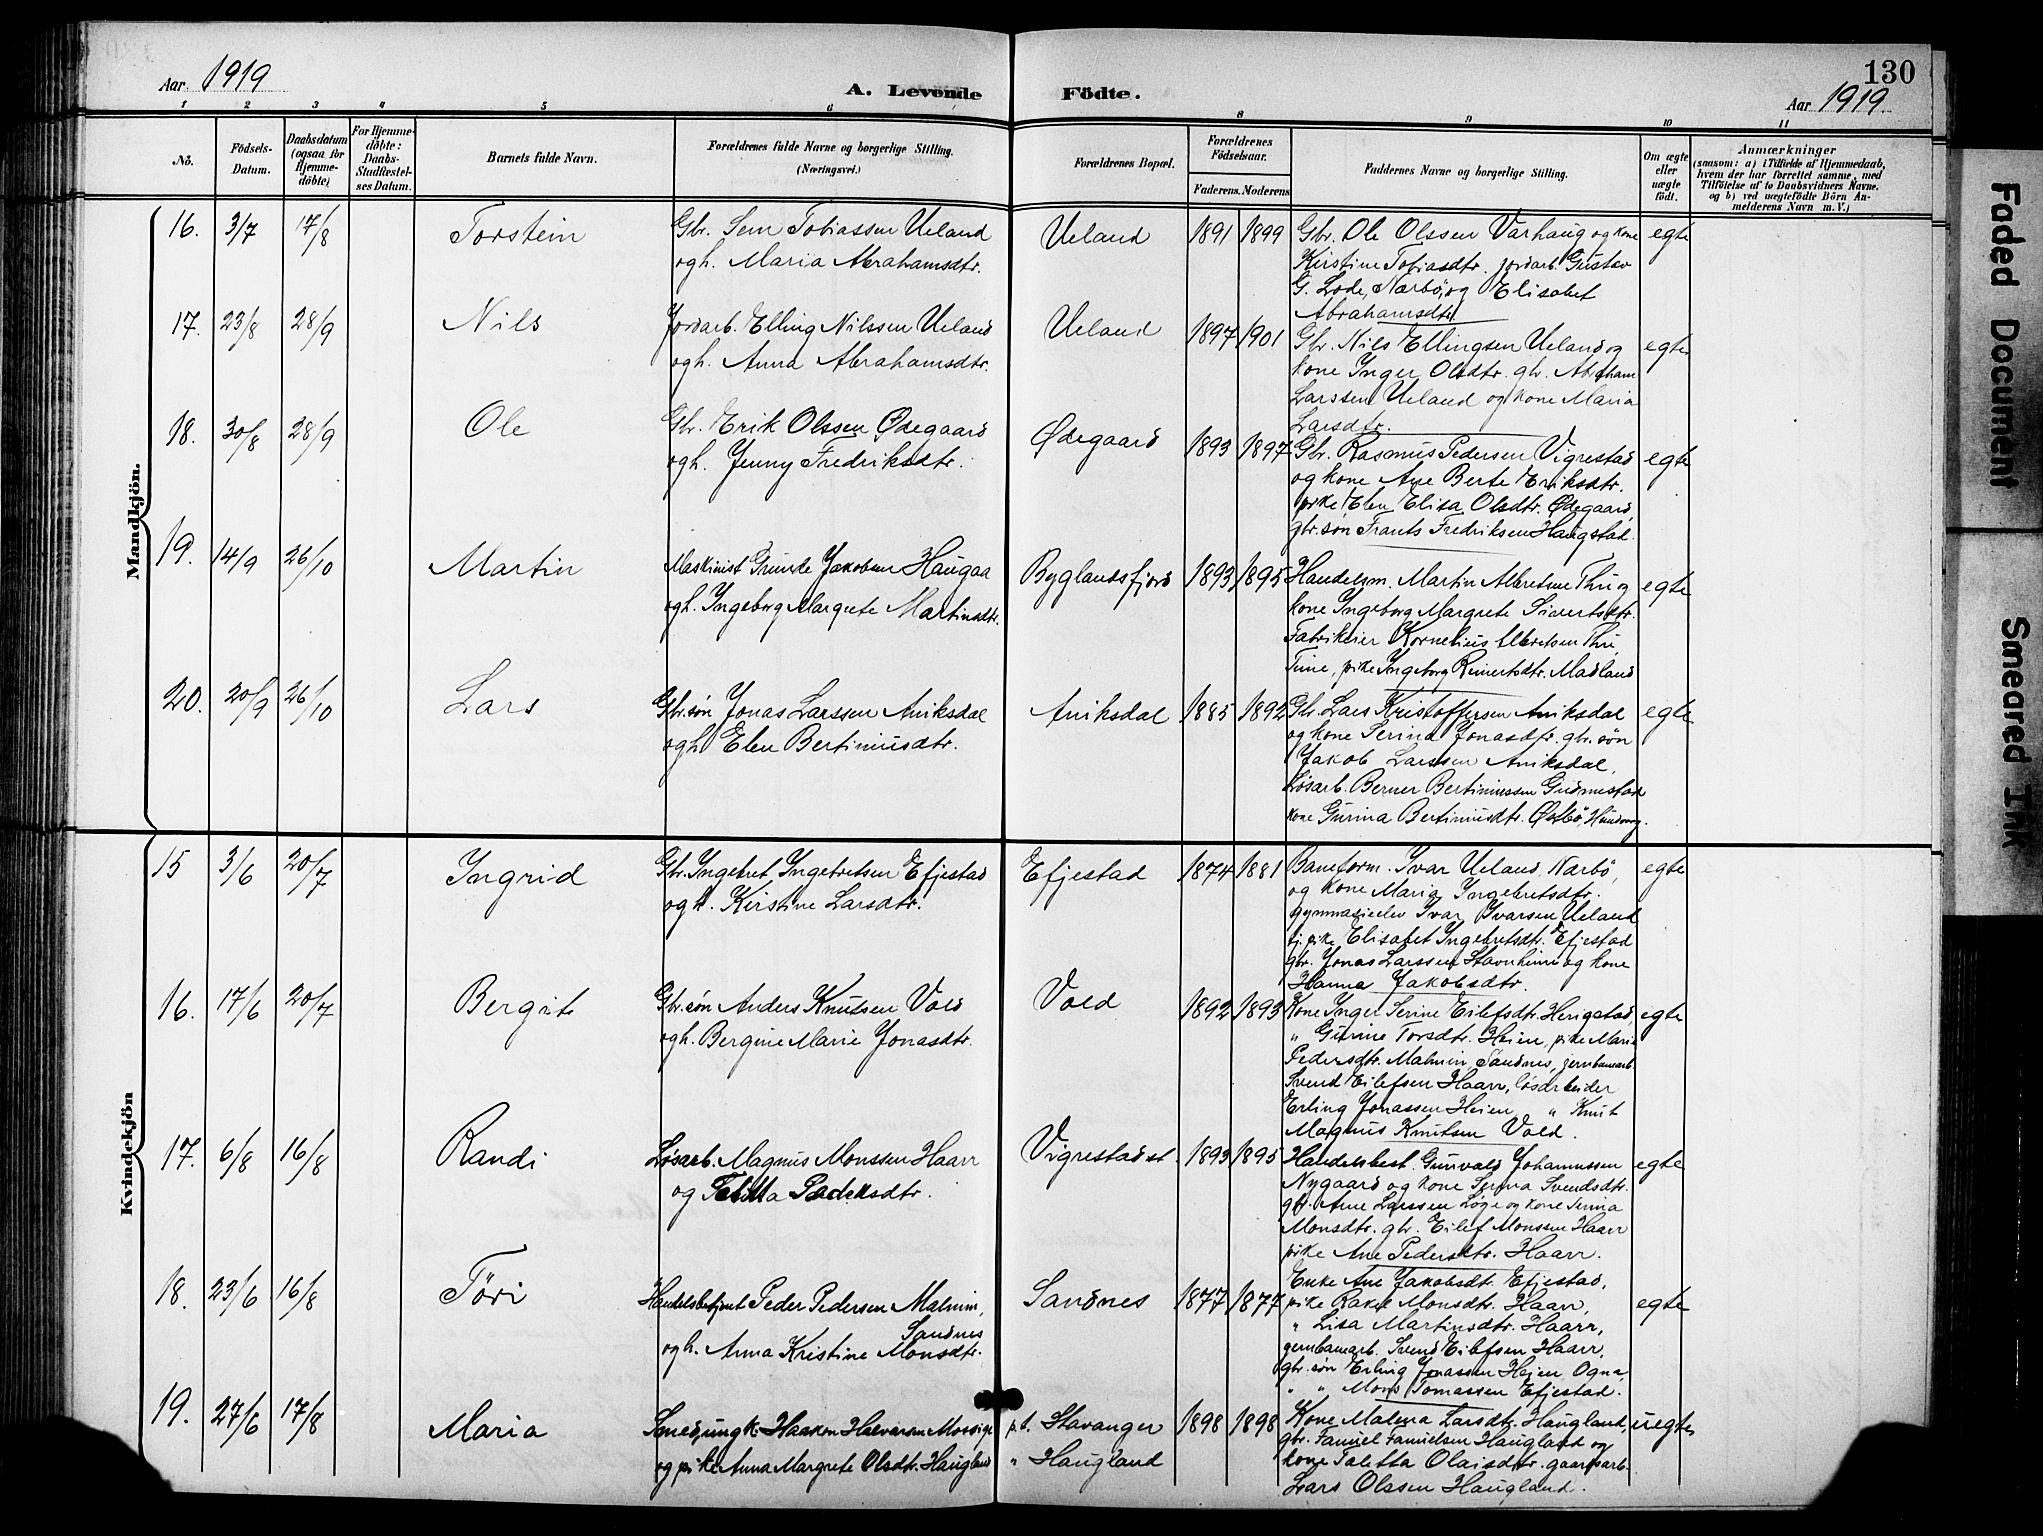 130
Aar 1919
A. Levende Födte.
Aar 1919
1 2 3 4 5 6 8 9 10 11
Nö.
Födsels-Datum.
Daabsdatum (ogsaa for Hjemme-döbte)
For Hjemme-döbte: Daabs-Stadfæstel-ses Datum.
Barnets fulde Navn.
Forældrenes fulde Navne og borgerlige Stilling. (Næringsvei.)
Forældrenes Bopæl.
Forældrenes Födselsaar.
Faderens. Moderens
Faddernes Navne og borgerlige Stilling.
Om ægte eller uægte födt.
Anmærkninger
(saasom: a) i Tilfælde af Hjemmedaab, hvem der har forrettet samme, med Tilföielse af to Daabsvidners Navne. og b) ved uægtefödte Börn An-melderens Navn m. V.)
Mandkjön.
16. 3/7 17/8 Torstein
Gbr. Sem Tobiassen Ueland
ogh. Maria Abrahamsdtr.
Ueland 1891 1899
Gbr. Ole Olssen Varhaug og kone
Kirstine Tobiasdtr. jordarb. Gustav
G. Lode, Nærbö, og Elisabet
Abrahamsdtr.
egte
17. 23/8 28/9 Nils
Jordarb. Elling Nilssen Ueland
ogh. Anna Abrahamsdtr.
Ueland 1897 1901
Gbr. Nils Ellingsen Ueland og
kone Inger Olsdtr. gbr. Abraham
Larssen Ueland og kone Maria
Larsdtr.
egte
18. 30/8 28/9 Ole
Gbr. Erik Olssen Ødegaard
ogh. Jenny Fredriksdtr.
Ødegaard 1893 1897
Gbr. Rasmus Pedersen Vigrestad
og kone Ane Berte Eriksdtr.
pike Elen Elisa Olsdtr. Ødegaard,
gbr. søn Frants Fredriksen Haugstad.
egte
19. 14/9 26/10 Martin
Maskinist Grunde Jakobsen Haugaa
ogh. Ingeborg Margrete Martinsdtr.
Byglandsfjord 1893 1895
Handelsm. Martin Albretsen Thu og
kone Ingeborg Margrete Sivertsdtr.
Fabrikeier Kornelius Albretsen Thu,
Time, pike Ingeborg Reinertsdtr. Madland
egte
20. 20/9 26/10 Lars
Gbr. søn Jonas Larssen Aniksdal
ogh Elen Bertiniusdtr.
Aniksdal 1885 1892
Gbr. Lars Kristoffersen Aniksdal
og kone Serina Jonasdtr. gbr. søn
Jakob Larssen Aniksdal,
Løsarb. Berner Bertiniussen Gudmestad
kone Gurina Bertiniusdtr. Østbö, Hundvaag.
egte
Kvindekjön
15 3/6 20/7 Ingrid
Gbr. Ingebret Ingebretsen Efjestad
ogh. Kirstine Larsdtr.
Efjestad 1874 1881
Baneform. Ivar Ueland, Nærbö,
og kone Maria Ingebretsdtr.
gymnasieelev Ivar Ivarsen Ueland
tj. pike Elisabet Ingebretsdtr. Efjestad
gbr. Jonas Larssen Stavnheim og kone
Hanna Jakobsdtr.
egte
16. 17/6 20/7 Bergit
Gbr. søn Anders Knutsen Vold
ogh. Bergine Marie Jonasdtr.
Vold 1892 1893
Kone Inger Serine Eilefsdtr. Herigstad,
" Gurine Torsdtr. Heien, pike Marie
Pedersdtr. Malmin, Sandnes, jernbanearb.
Svend Eilefsen Haarr, løsarbeider
Erling Jonassen Heien " Knut
Magnus Knutsen Vold.
egte
17. 6/8 16/8 Randi
Løsarb. Magnus Monssen Haarr
og Talitta Pedersdtr.
Vigrestad st. 1893 1895
Handelsbest. Gunvald Johannussen
Nygaard og kone Serina Svendsdtr.
gbr. Arne Larssen Løge og kone Serina
Monsdtr. gbr. Eilef Monssen Haarr
pike Ane Pedersdtr. Haarr.
egte
18. 23/6 16/8 Töri
Handelsbetjent Peder Pedersen Malmin,
Sandnes
ogh. Anna Kristine Monsdtr.
Sandnes 1877 1877
Enke Ane Jakobsdtr. Efjestad,
pike Rakel Monsdtr. Haarr,
" Lisa Martinsdtr. Haarr,
jernbanearb. Svend Eilefsen Haarr,
gbr. søn Erling Jonassen Heien, Ogna,
" " Mons Tomassen Efjestad.
egte
19. 27/6 17/8 Maria
Smed, ungk. Haakon Halvorsen Mossige
og pike Anna Margrete Olsdtr. Haugland
p.t. Stavanger
" Haugland
1898 1898
Kone Malena Larsdtr. Haugland,
gbr. Samuel Samuelsen Haugland og
kone Taletta Olaisdtr. gaardsarb.
Lars Olssen Haugland.
uegte
Faded Document
Smeared Ink